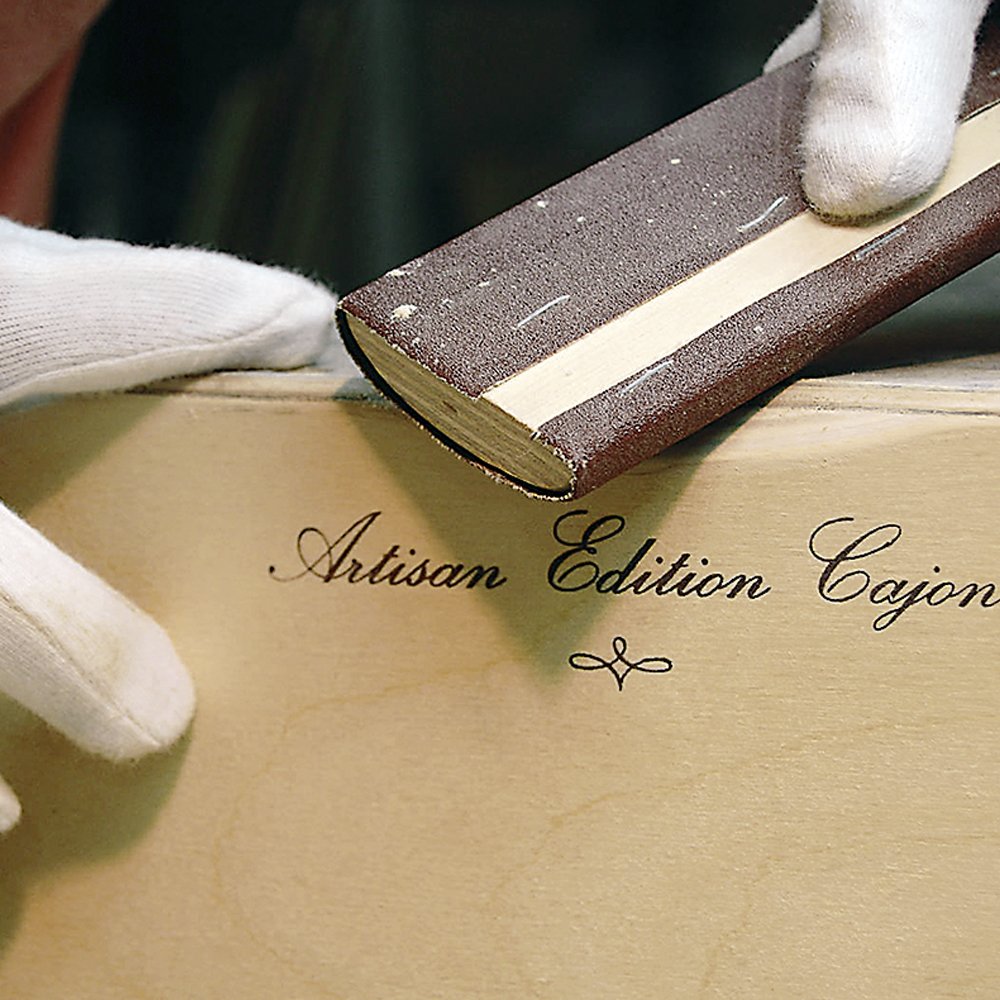 Artisan Edition Cajon